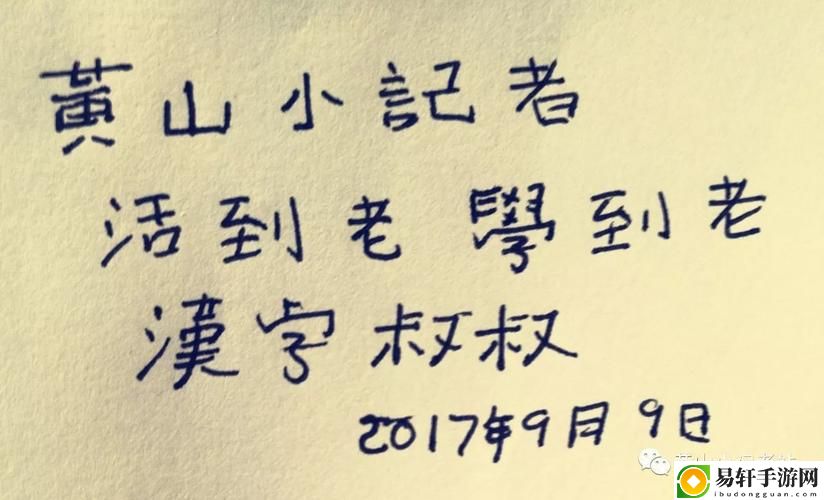 黃山小記者
活到老 學到老
漢字叔叔
2017年9月9日
黄山小记者站
易轩手游网
ibudongguan.com